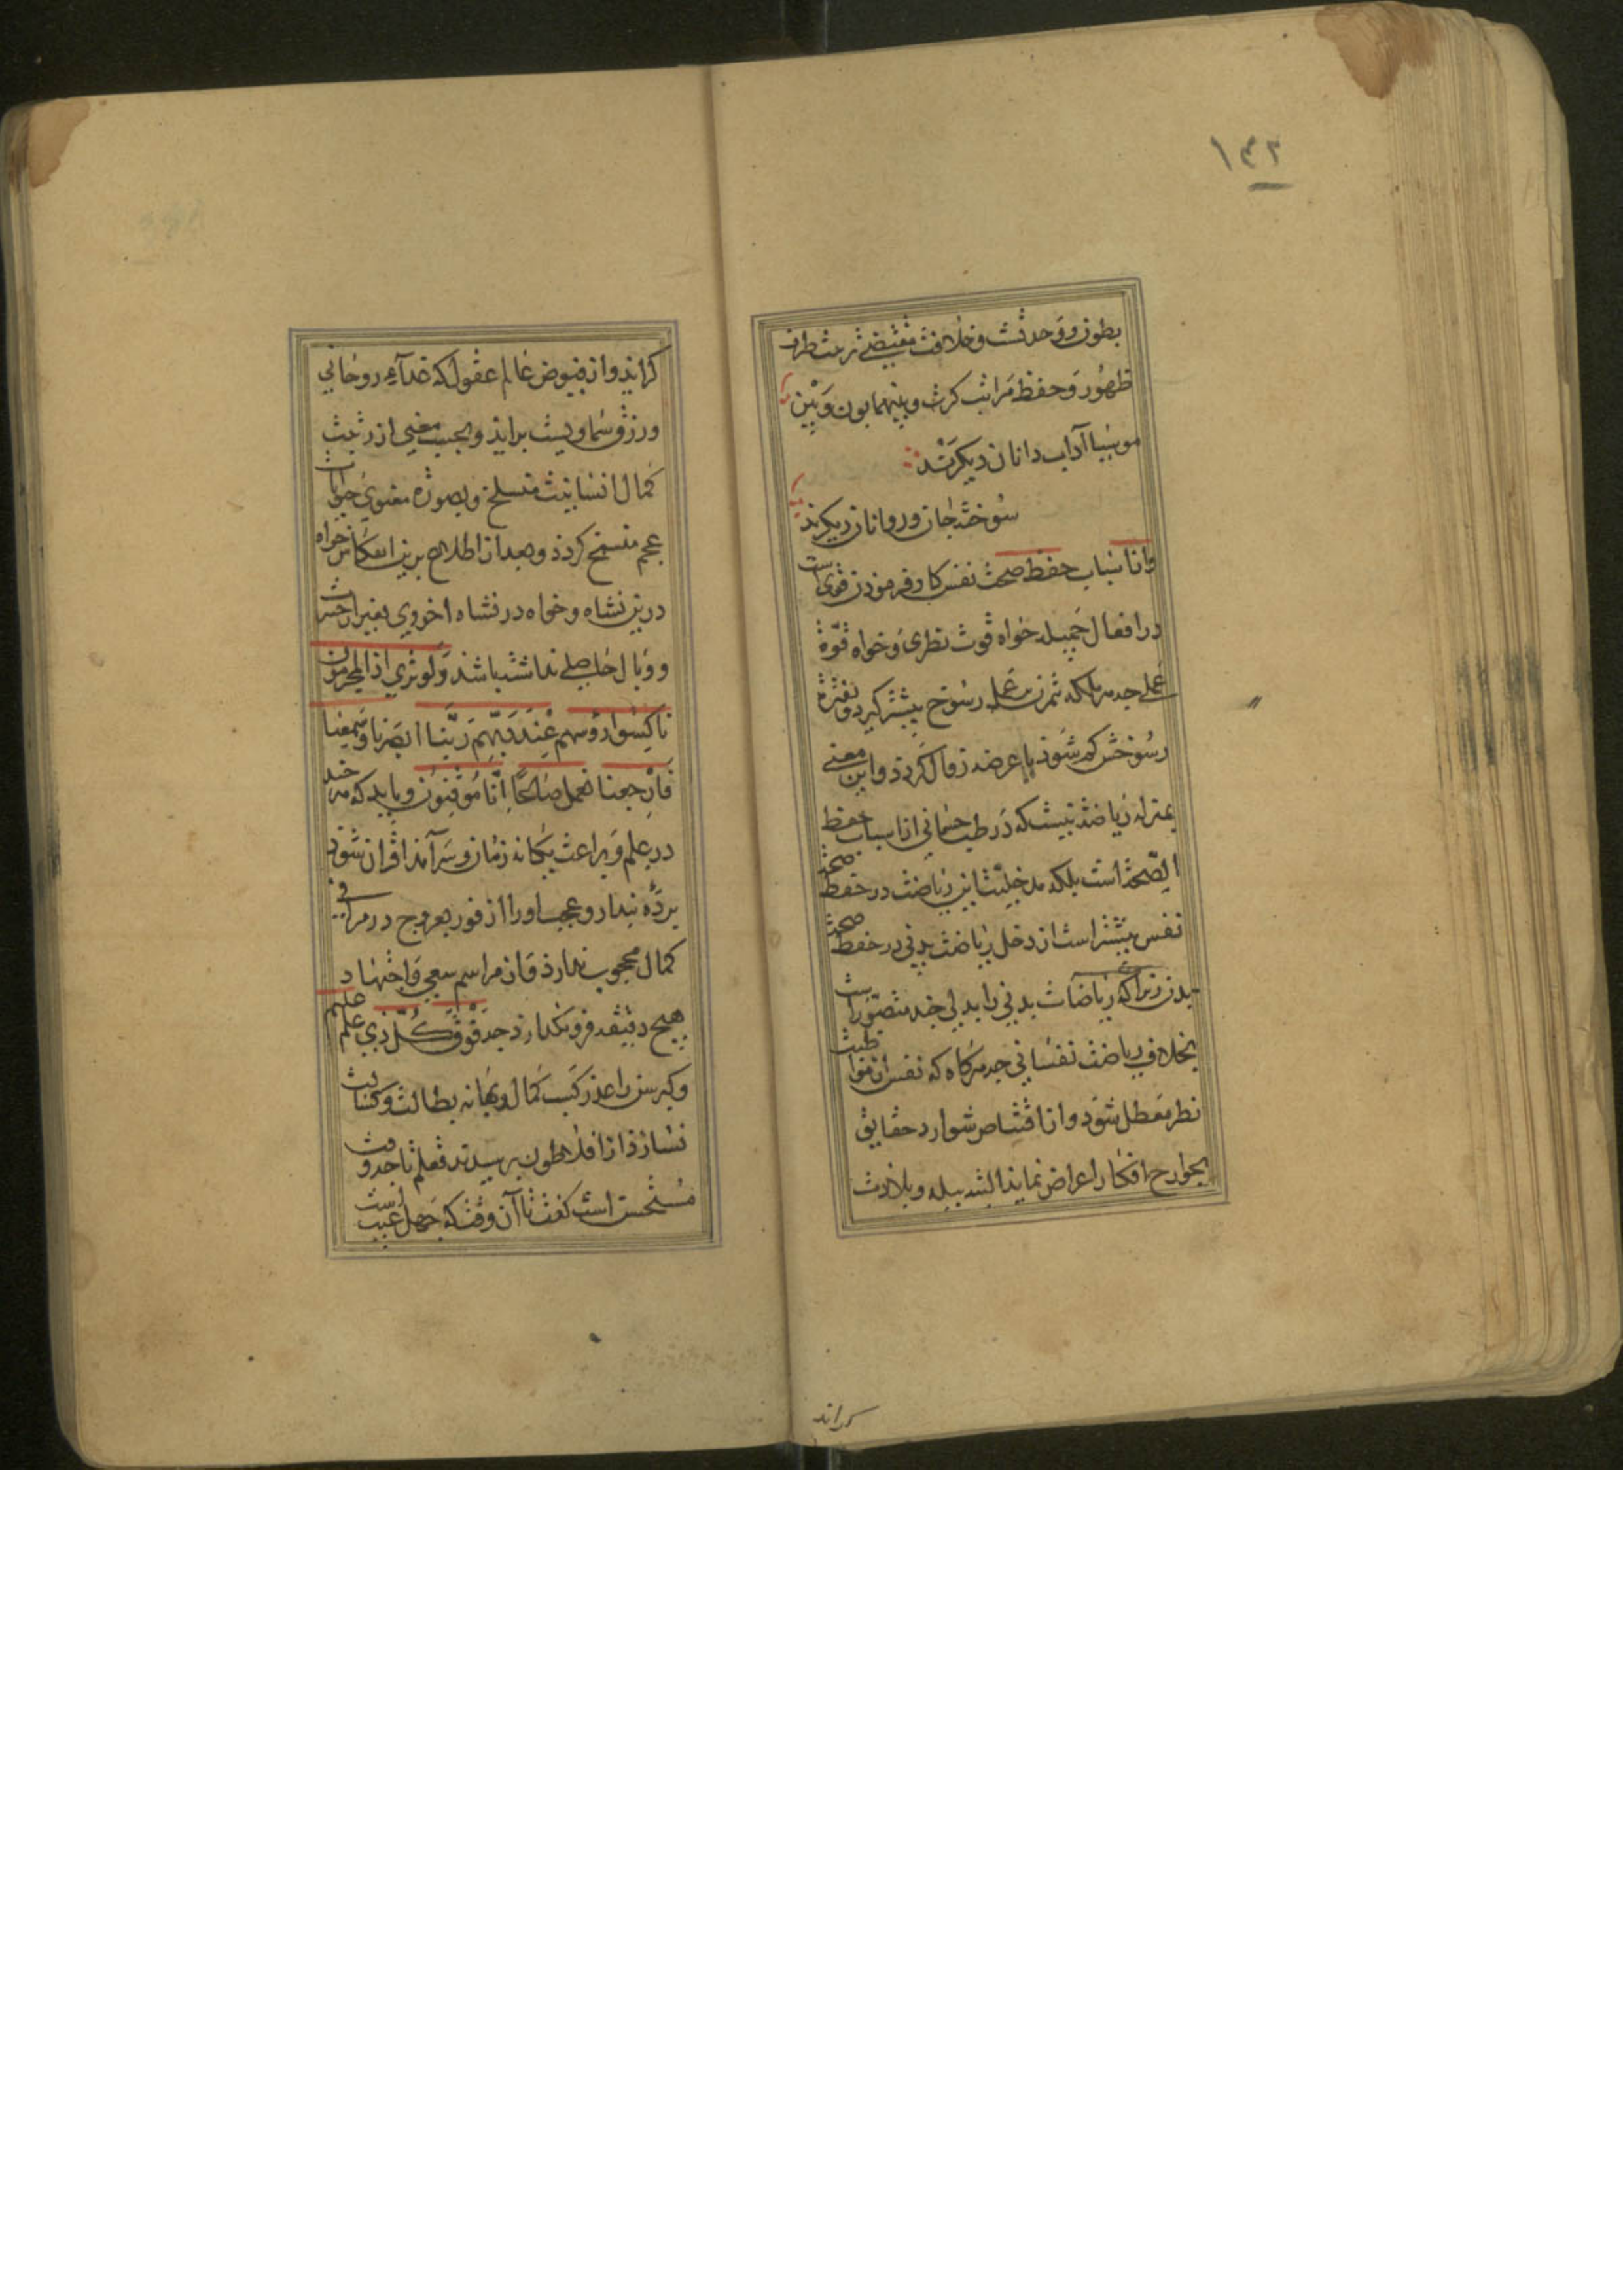 ۱۴۲
بطون و وحدتست و خلافت مقتضی رعیت طرف
ظهور و حفظ مراتب کثرت و بینهما بون و بین
موسیا آداب دانان دیکرند
سوخته جان و روانان دیکرند
و از اسباب حفظ صحت نفس کار فرمودن قوی است
در افعال جمیله خواه قوت نظری و خواه قوّة
عملی چه هر ملکه بتمرن عمل رسوخ بیشتر کیرد و بفترة
رسوخش کم شود یا عرضه زوال کردد و این معنی
بمنزله ریاضتیست که در طب جسمانی از اسباب حفظ
الصّحة است بلکه مدخلیت این ریاضت در حفظ صحة
نفس بیشتر است از دخل ریاضت بدنی در حفظ صحت
بدن زیرا که ریاضات بدنی را بدلی چند متصوّر است
بخلاف ریاضت نفسانی چه هرکاه که نفس از مواظبت
نظر معطل شود و از اقتناص شوارد حقایق
بجوارح افکار اعراض نماید البته ببله و بلادت
کراید
کراید و از فیوض عالم عقول که غدآء روحانی
و رزق سماویست براید و بحسب معنی از رتبت
کمال انسانیت منسلخ و بصورة معنوی حیوانات
عجم منسخ کردد و بعد از اطلاع برین انعکاس خواه
درین نشاه و خواه در نشاه اخروی بغیر از حسرت
و وبال حاصلی نداشته باشد وَلَو تری اذ المجرمون
ناکِسُوا رؤسهم عِندَ رَبِّهِم رَبَّنا ابصَرنا وَسَمِعنا
فارجعنا نعمل صَالِحًا اِنَّا مُوقِنُون و باید که هر چند
در علم و براعت یکانه زمان و سرآمد اقران شود
پردهٔ پندار و عجب او را از فور بعروج در مراقی
کمال محجوب ندارد و از مراسم سعی و اجتهاد
هیچ دقیقه فرو نکذارد چه فَوْقَ کُلِّ ذی علم علیم
و کبر سن را عذر کسب کمال و بهانه بطالت و کسالت
نسازد از افلاطون پرسیدند تعلم تا چه وقت
مستحسن است کفت تا آن وقت که جهل عیب است